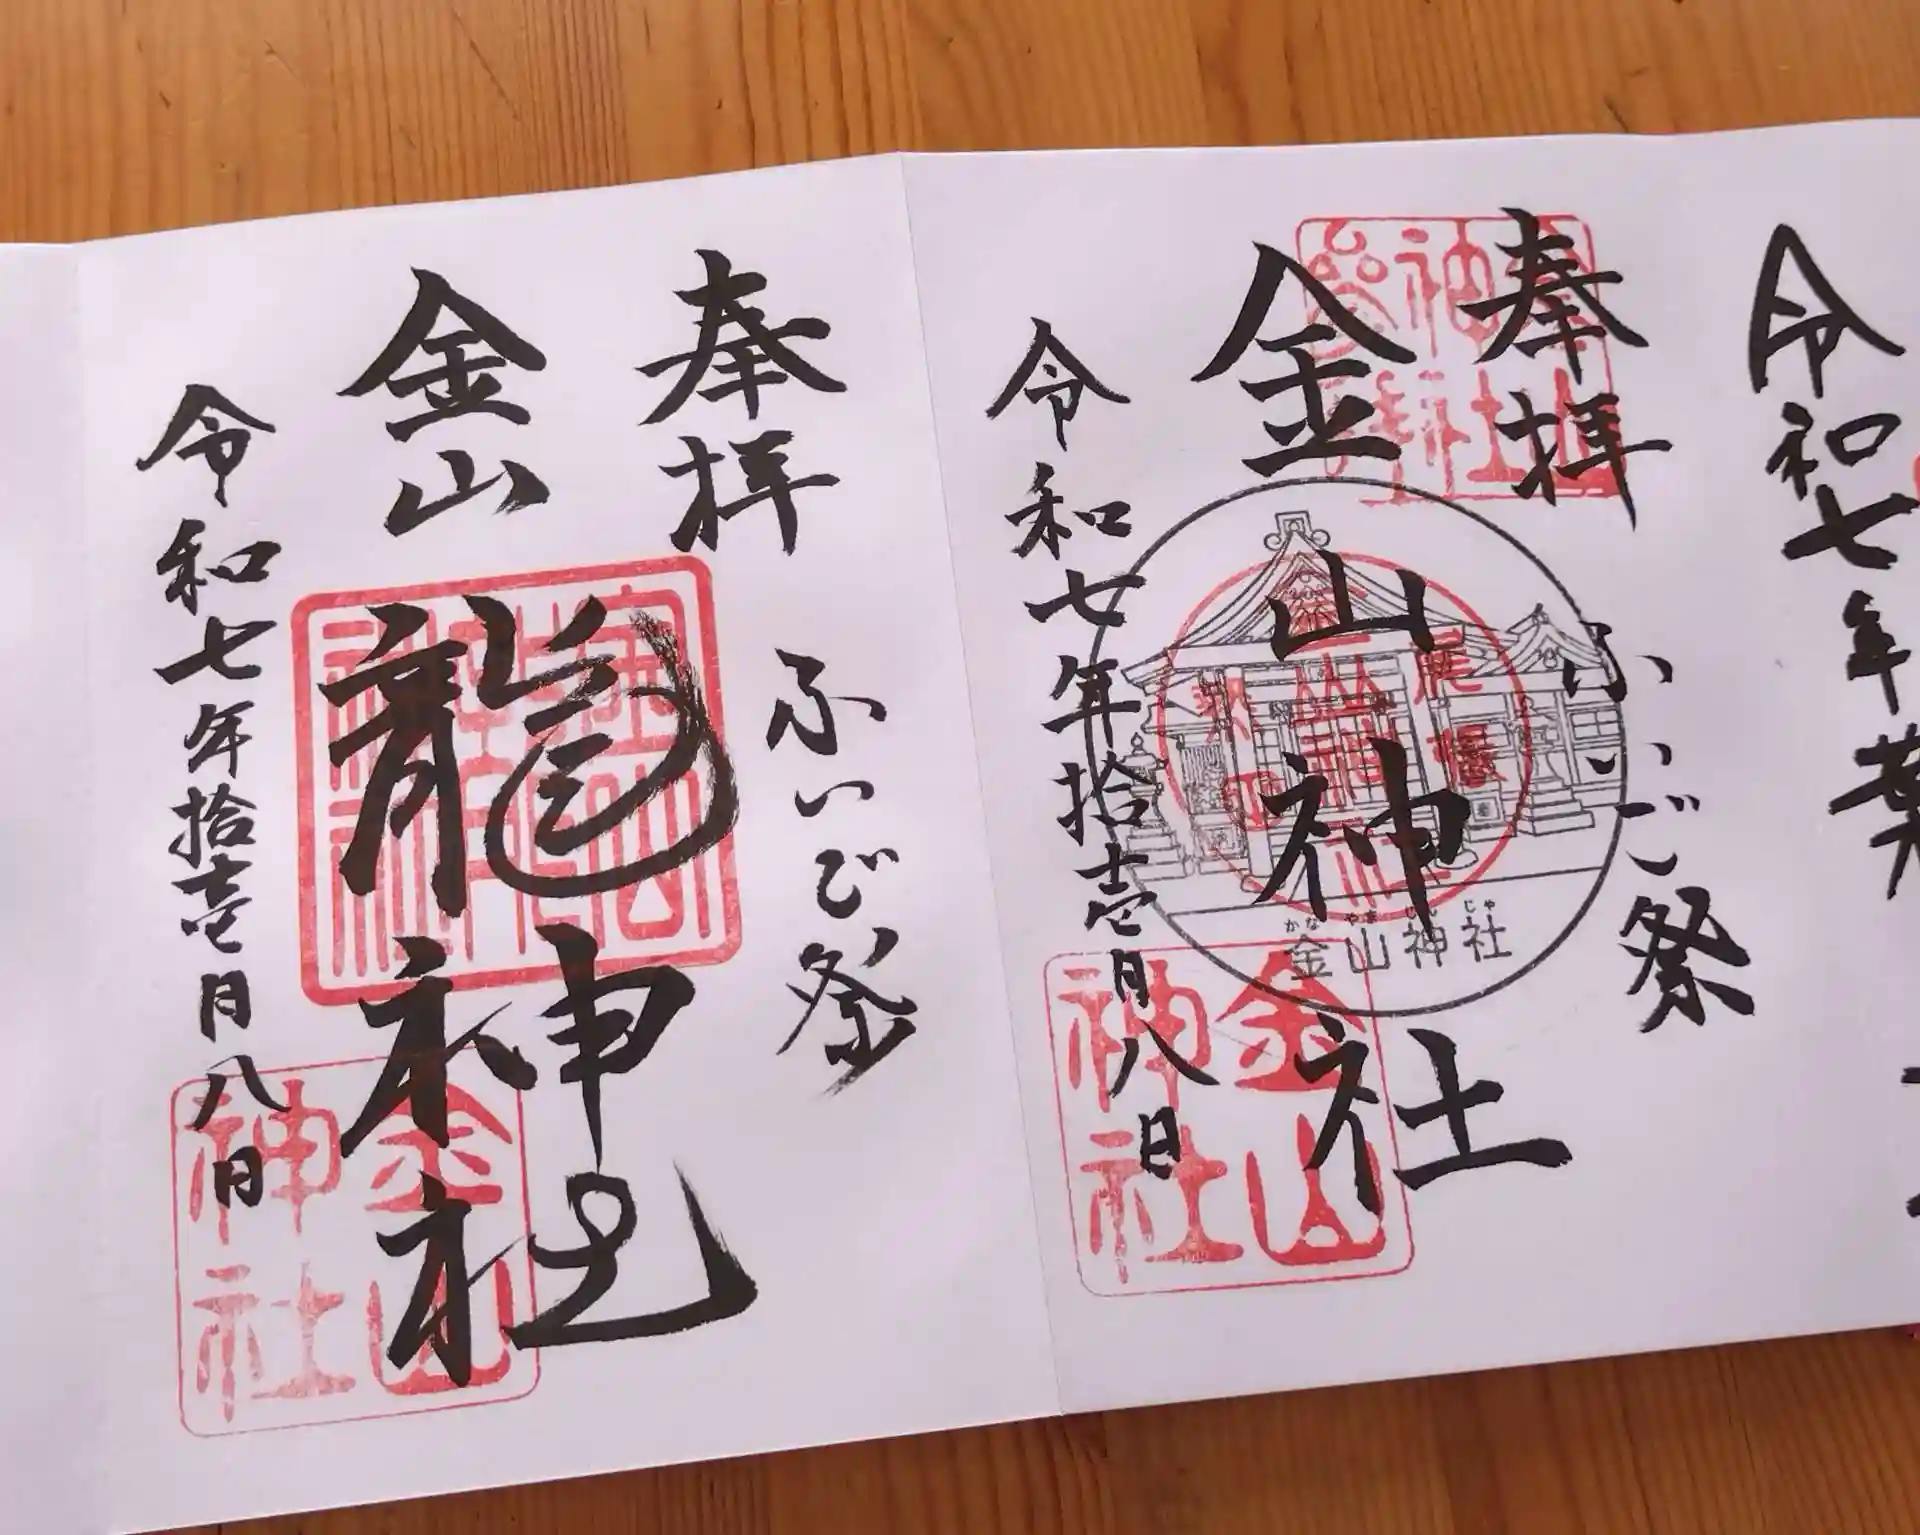 令和七年葉
奉拝
ふいご祭
金山神社
令和七年拾壱月八日
金山神社
かなやまじんじゃ
金山神社
奉拝
ふいご祭
金山
龍神社
令和七年拾壱月八日
金山神社